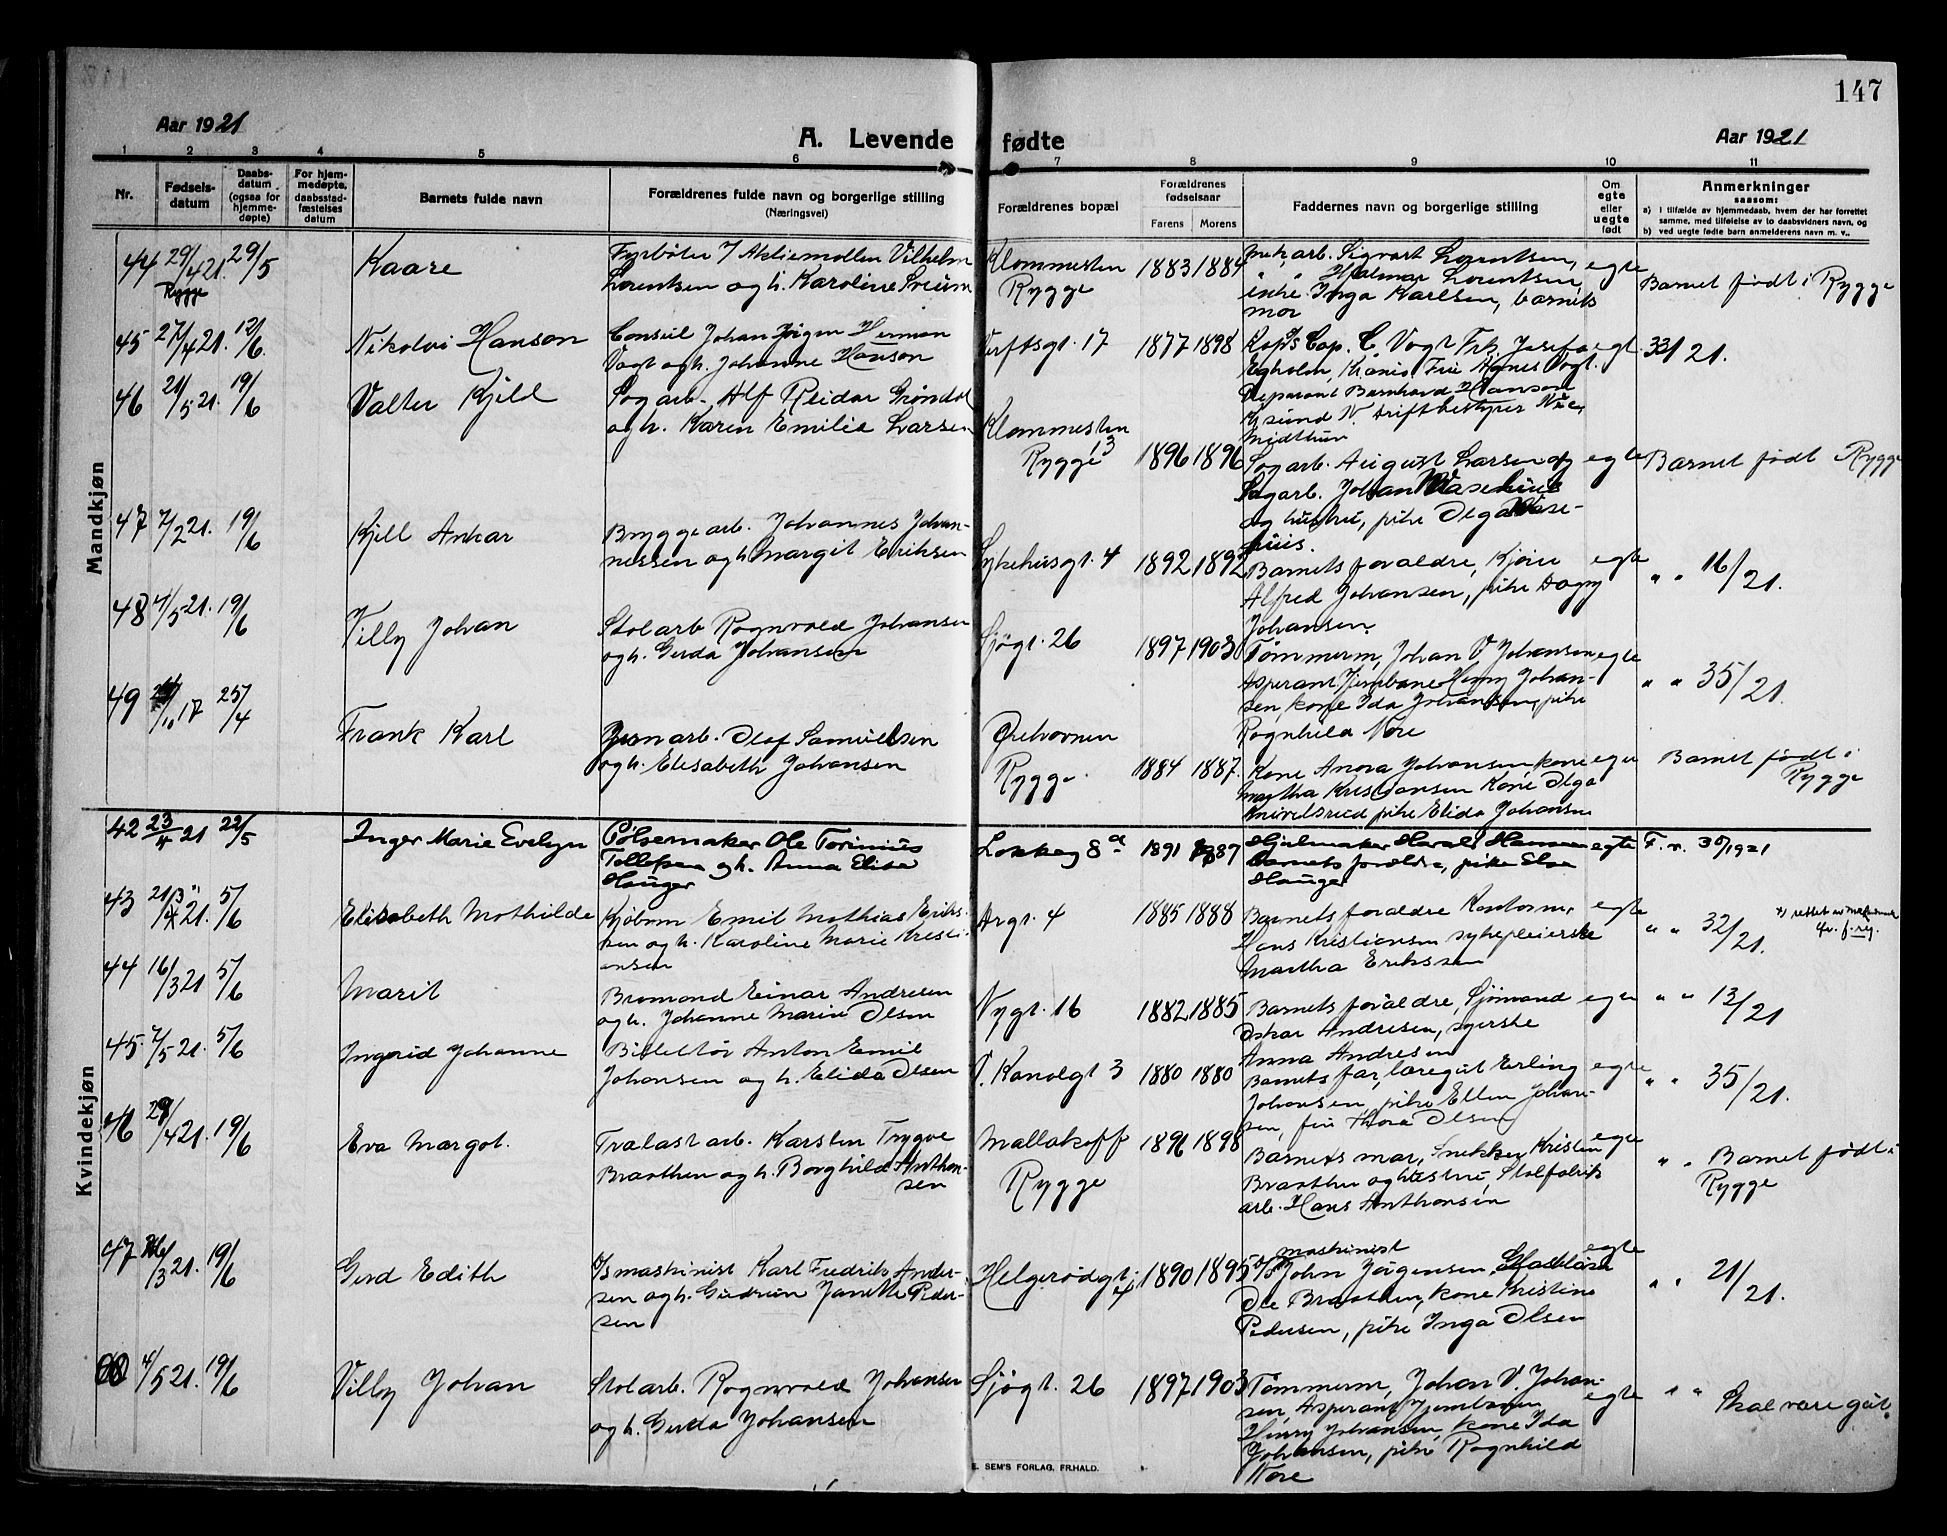 147
Aar 1921
A. Levende fødte
Aar 1921
1 2 3 4 5 6 7 8 9 10 11
Nr.
Fødsels-
datum
Daabs-
datum
(ogsaa for
hjemme-
døpte)
For hjem-
medøpte,
daabsstad-
fæstelses
datum
Barnets fulde navn
Forældrenes fulde navn og borgerlige stilling
(Næringsvei)
Forældrenes bopæl
Forældrenes
fødselsaar
Farens Morens
Faddernes navn og borgerlige stilling
Om
egte
eller
uegte
født
Anmerkninger
saasom:
a) I tilfælde av hjemmedaab, hvem der har forrettet
samme, med tilføielse av to daabsvidners navn, og
b) ved uegte fødte barn anmelderens navn m. v.,
Mandkjøn
44 29/4 21. 29/5 Kaare
Rygge
Fyrbøter Vilhelm
Lorentsen og h. Karoline
Klommesten
Rygge
1883 1884
arb. Sigvart Lorentsen,
" " Hjalmar Lorentsen,
Inga Karlsen, barnets
mor
egte
Barnet født i Rygge
45 27/4 21. 12/6. Nikolai Hanson
Consul Johan Jørgen Herman
Vogt og h. Johanne Hanson
Verftsgt. 17
1877 1898
Cap. C Vogt Frk. Josefa
Egholm, Fru Agnes Vogt.
Aspirant Bernhard Hanson
driftbestyrer
Midthun
egt.
33/21.
46 21/5 21. 19/6 Valter Kjeld
Sagarb. Alf Reidar Grøndal
og h. Karen Emilie Larsen
Klommesten
Rygge 13
1896 1896
Sagarb. August Larsen og
Sagarb. Johan
og hustru, pike Olga
huus.
egte
Barnet født Rygge
47 7/2 21. 19/6 Kjell Ankar
Bryggearb. Johannes Johan-
nessen og h. Margit Eriksen
Sykehusgt. 4
1892 1892
Barnets foraldre,
Alfred Johansen, pike Dagny
Johansen.
egte
" " 16/21.
48 4/5 21. 19/6 Villy Johan
Stolarb Rognvald Johansen
og h. Gerda Johansen
Sjøgt. 26
1897 1903
Tømmerm, Johan V. Johansen
Asperant Henry Johan-
sen, kone Ida Johansen, pike
Rognhild Nore
egte
" " 35/21.
49 /10 17 25/4 Frank Karl
Jernarb. Olaf Samuelsen
og h. Elisabeth Johansen
Ørehavnen
Rygge.
1884 1887.
Kone Anora Johansen kone
Martha Kristiansen Kone Olga
Knivelsrud pike Elida Johansen
egte
Barnet født i
Rygge
Kvindekjøn
42 23/4 21 22/5 Inger Marie Evelyn
Pølsemaker Ole Torinius
Tollefsen og h. Anna Elise
Hauger
Løkkeg 8a
1891 1887
Hjulmaker Harald Hansen
barnets foreldre, pike Elsa
Hauger
egte
F. r. 35/1921
43 21/3 21. 5/6 Elisabeth Mathilde
Kjøbm Emil Mathias Eriks-
sen og h. Karoline Marie Kristi-
ansen
Argt. 4
1885 1888
Barnets foraldre Kontorm,
Hans Kristiansen sykepleierske
Martha Erikssen
egte
" " 32/21.
44 16/3 21 5/6 Marit
Bromand Einar Andresen
og h. Johanne Marie Olsen
Nygt. 16
1882 1885
Barnets foraldre, Sjømand
Oskar Andresen, syerske
Anna Andresen
egte
" " 13/21
45. 7/5 21. 5/6 Ingrid Johanne
Billettør Anton Emil
Johansen og h. Elida Olsen
V. Kanalgt 3
1880 1880
Barnets far, læregut Erling
Johansen, pike Ellen Johan-
sen, fru Thora Olsen
egte
" " 35/21.
46 29/4 21. 19/6 Eva Margot.
Trælastarb. Karsten Trygve
Braathen og h. Borghild Anthon-
sen
Mallakoff
Rygge
1896 1898
Barnets mor, Snekker Kristen
Braathen og hustru, Stolfabrik
arb. Hans Anthonsen
egte
" . Barnet født i
Rygge
47 /3 21. 19/6 Gerd Edith
D/S maskinist Karl Fredrik Ander-
sen og h. Gudrun Janette Peder-
sen
Helgerødgt. 4
1890 1895
maskinist
D/S John Jørgensen, Glasblåser
Ole Braathen, kone Kristine
Pedersen, pike Inga Olsen
egte
" " 21/21.
4/5 21. 19/6 Villy Johan
Stolarb. Rognvald Johansen
og h. Gerda Johansen
Sjøgt. 26
1897 1903
Tømmerm, Johan V. Johan-
sen, Asperant Jernbanen
Henry Johansen, kone Ida
Johansen, pike Rognhild
Nore
egte
" " Skal være gut.
E. SEM'S FORLAG, FR.HALD.